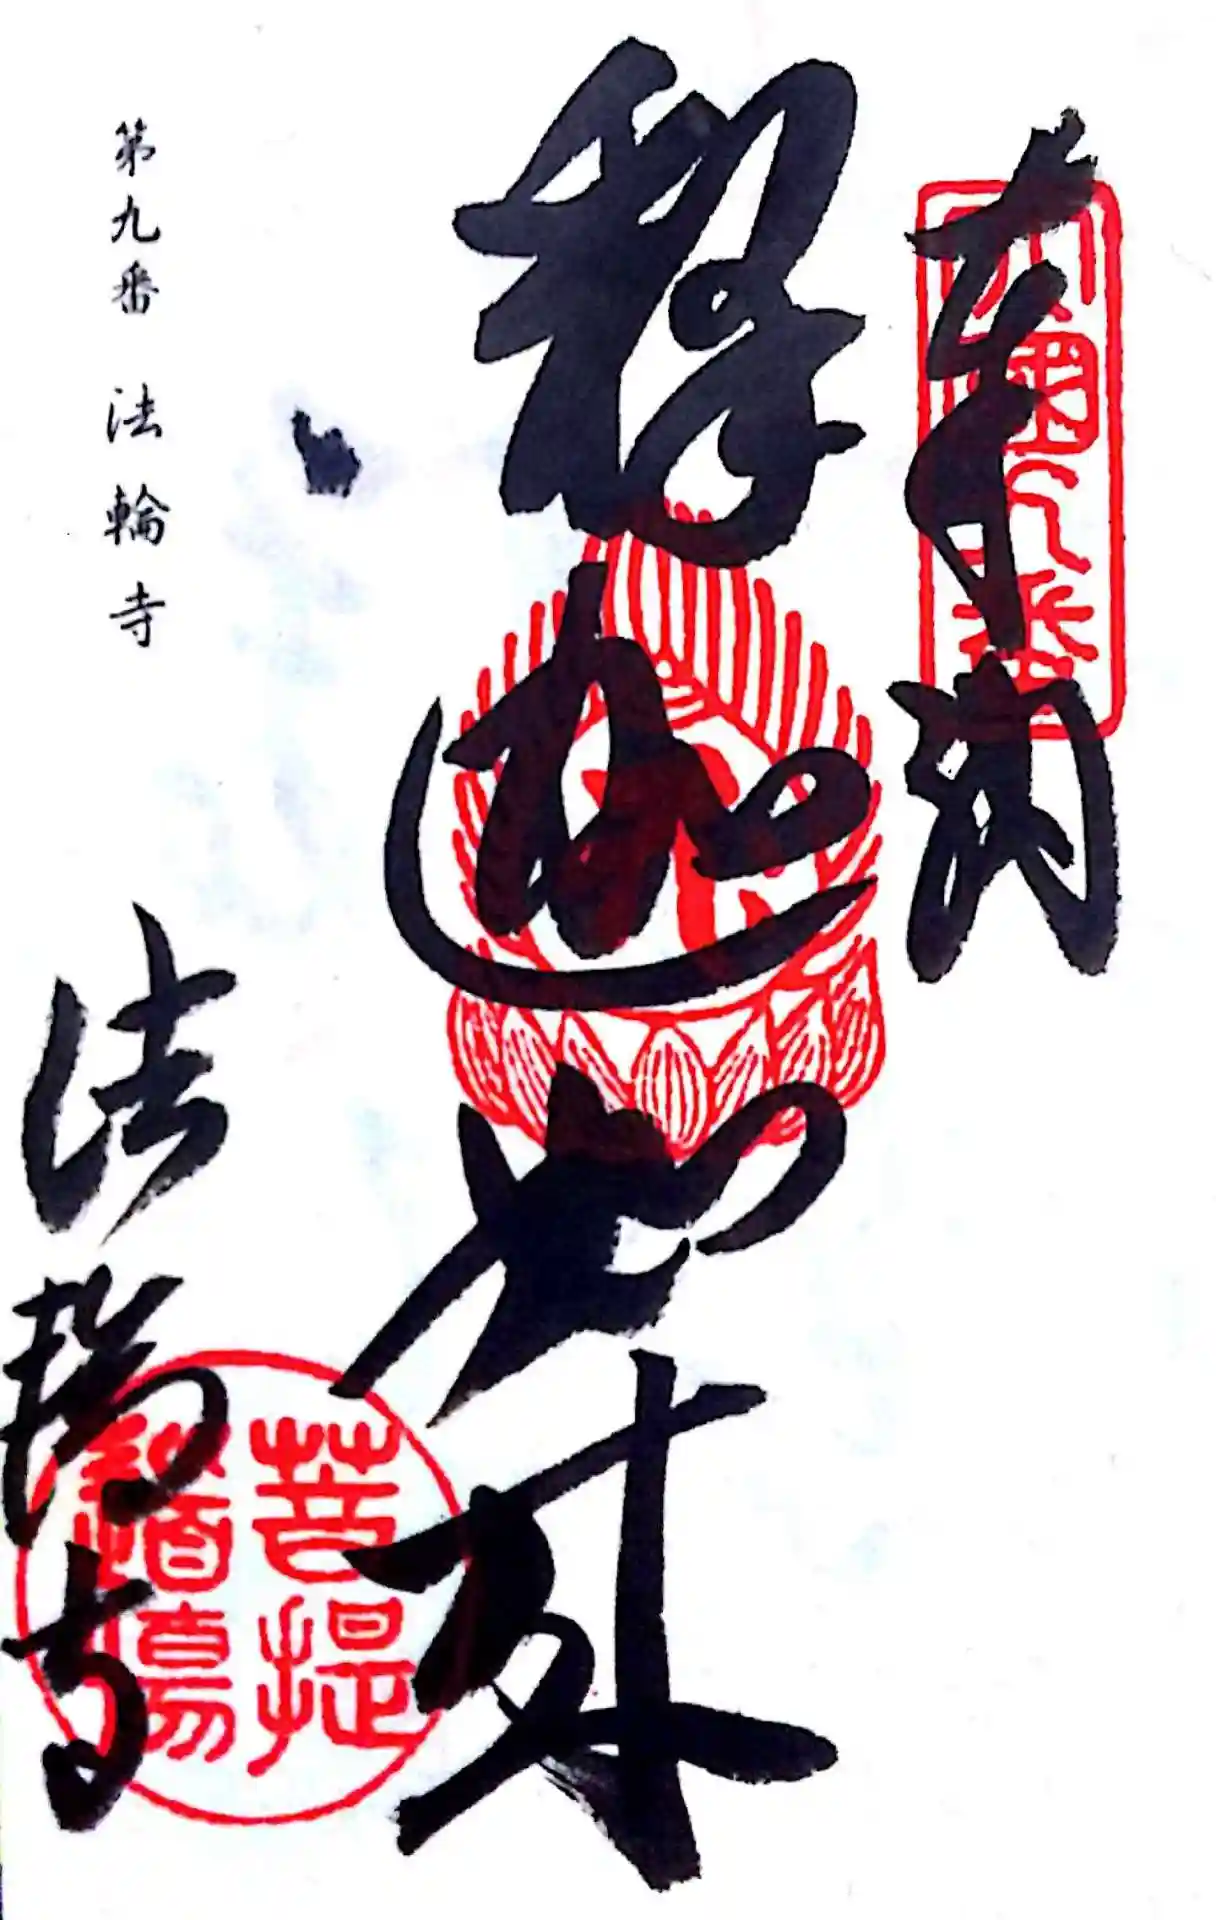 奉納
四國九番
釋迦如来
第九番 法輪寺
法輪寺
菩提
道場